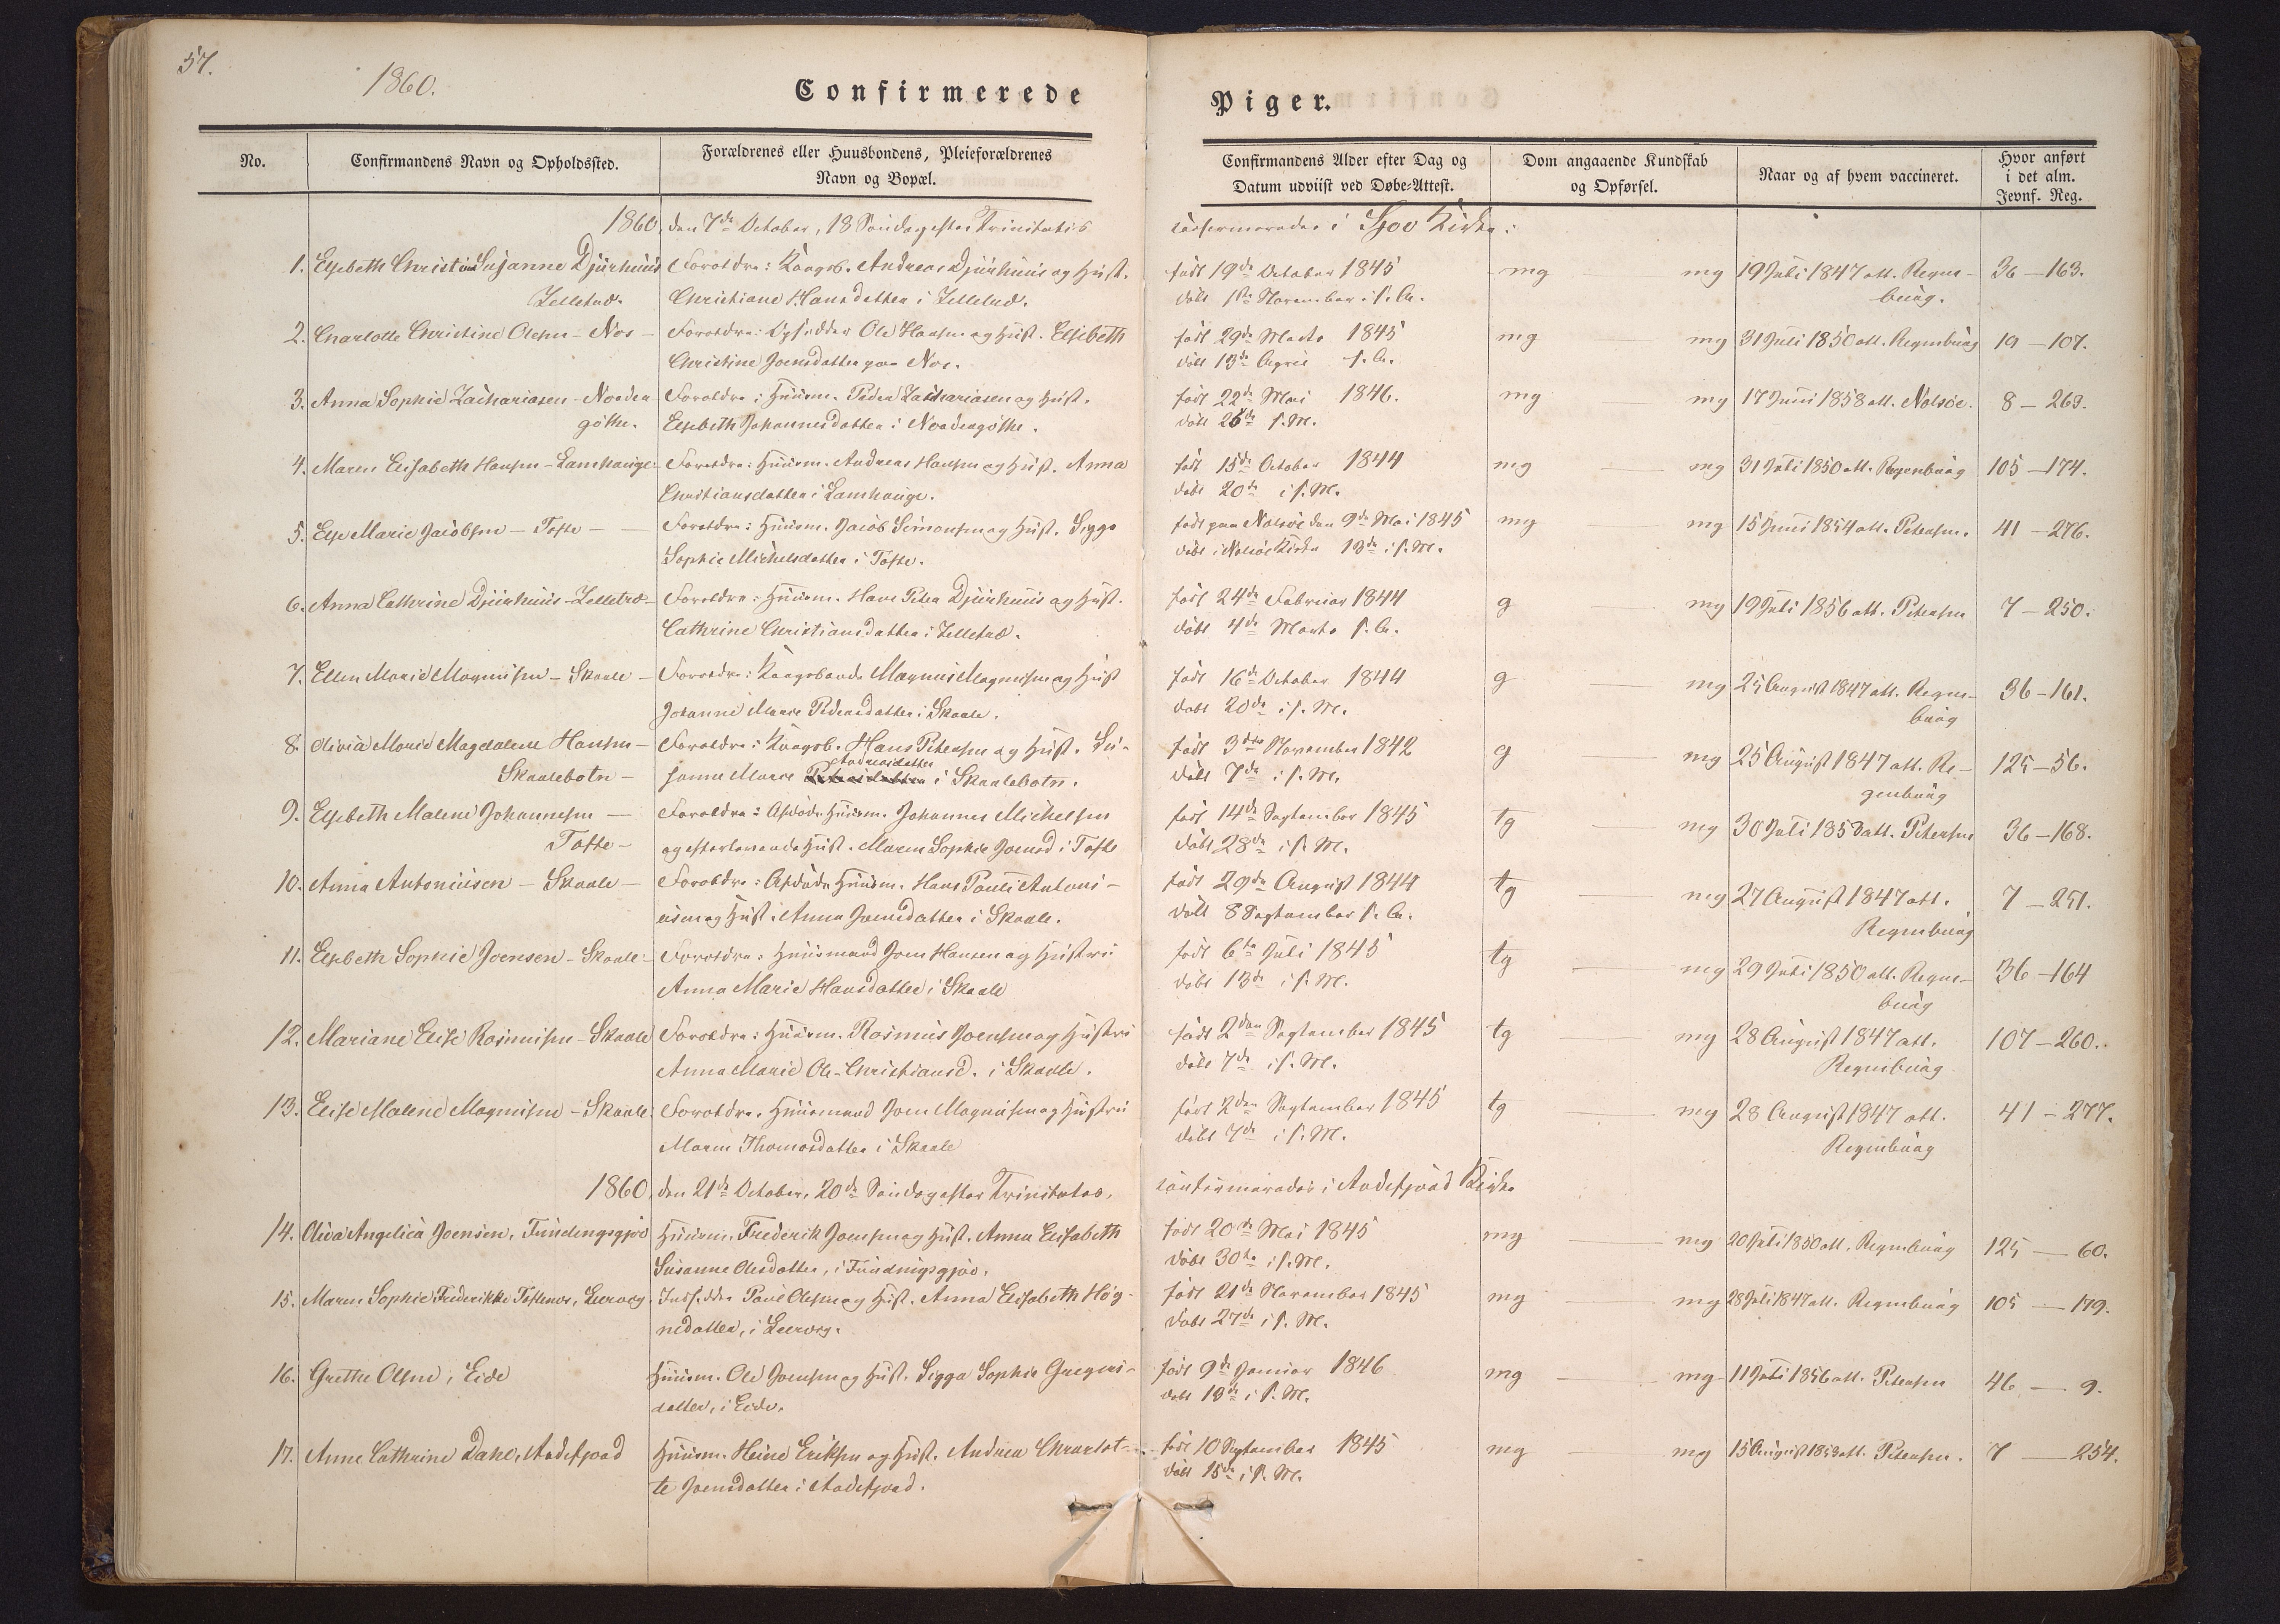 57.
1860.
Confirmerede
Piger.
No.
Confirmandens Navn og Opholdssted.
Forældrenes eller Huusbondens, Pleieforældrenes
Navn og Bopæl.
Confirmandens Alder efter Dag og
Datum udviist ved Døbe-Attest.
Dom angaaende Kundskab
og Opførsel.
Naar og af hvem vaccineret.
Hvor anført
i det alm.
Jevnf. Reg.
1860, den 7de October, 18 Søndag efter Trinitatis confirmeredes i Gjov Kirke:
1. Elsebeth Christine Susanne Djurhuus Forældre: Kongsb. Andreas Djurhuus og Hust. født 19de October 1845 mg mg 19 Juli 1847 att. Regen- 36 – 163.
Zelletræ. Christiane Hansdatter i Zelletræ. døbt 1ste November i s. A. burg.
2. Charlotte Christine Olesen – Nos – Forældre: Ole Hansen og Hust. Elsebeth født 29de Marts 1845 mg mg 31 Juli 1850 att. Regenburg 19 – 107.
Christine Joensdatter paa Nos. døbt 13de April s. A.
3. Anna Sophie Zachariasen – Norder- Forældre: Huusm. Peder Zachariasen og Hust. født 22de Mai 1846. mg mg 17 Juni 1858 att. Nolsöe. 8 – 269.
göthe. Elsebeth Johannesdatter i Nordregöthe. døbt 26de s. M.
4. Maren Elisabeth Hansen – Lamhauge – Forældre: Huusm. Andreas Hansen og Hust. Anna født 15de October 1844 mg mg 31 Juli 1850 att. Regenburg 105 – 174.
Christiansdatter i Lamhauge. døbt 20de i s. M.
5. Else Marie Jacobsen – Tofte – Forældre: Huusm. Jacob Simonsen og Hust. Sigga født paa Nolsöe den 9de Mai 1845 mg mg 15 Juni 1854 att. Petersen. 41 – 276.
Sophie Michelsdatter i Tofte. døbt i Nolsöe Kirke 13de i s. M.
6. Anna Cathrine Djurhuus – Zelletræ – Forældre: Huusm. Hans Peter Djurhuus og Hust. født 24de Februar 1844 g mg 19 Juli 1856 att. Petersen 7 – 250.
Cathrine Christiansdatter i Zelletræ. døbt 4de Marts s. A.
7. Ellen Marie Magnussen – Skaale – Forældre: Kongsbonde Magnus Magnussen og Hust født 16de October 1844 g mg 25 August 1847 att. Regen- 36 – 161.
Johanne Marie Pedersdatter i Skaale. døbt 20de i s. M. burg
8. Olivia Marie Magdalene Hansen – Forældre: Kongsb. Hans Petersen og Hust. Su- født 3die November 1842 g mg 25 August 1847 att. Re- 125 – 56.
Andreasdatter
Skaalebotn – sanne Marie i Skaalebotn. døbt 7de i s. M. genburg
9. Elsebeth Malene Johannesen – Forældre: Afdøde Huusm. Johannes Michelsen født 14de September 1845 tg mg 30 Juli 1853 att. Petersen 36 – 168.
Tofte – og efterlevende Hust. Maren Sophie Joensd i Tofte døbt 28de i s. M.
10. Anna Antoniusen – Skaale – Forældre: Afdøde Huusm. Hans Pauli Antoni- født 29de August 1844 tg mg 27 August 1847 att. 7 – 251.
usen og Hust. Anna Joensdatter i Skaale. døbt 8 September s. A. Regenburg
11. Elsebeth Sophie Joensen – Skaale – Forældre: Huusmand Joen Hansen og Hustru født 6te Juli 1845 tg mg 29 Juli 1850 att. Regen- 36 – 164
Anna Marie Hansdatter i Skaale døbt 13de i s. M. burg
12. Mariane Elise Rasmussen – Skaale Forældre: Huusm. Rasmus Joensen og Hustru født 2den September 1845 tg mg 28 August 1847 att. 107 – 260.
Anna Marie Ole-Christiansd. i Skaale. døbt 7de i s. M. Regenburg
13. Elise Malene Magnussen – Skaale Forældre: Huusmand Joen Magnussen og Hustru født 2den September 1845 tg mg 28 August 1847 att. 41 – 277.
Maren Thomasdatter i Skaale døbt 7de i s. M. Regenburg
1860, den 21de October, 20de Søndag efter Trinitatis, confirmeredes i Andefjord Kirke
14. Oliva Angelica Joensen, Fundingsgjov Huusm. Frederik Joensen og Hust. Anna Elisabeth født 20de Mai 1845 mg mg 20 Juli 1850 att. Regenburg 125 – 60.
Susanne Olesdatter, i Fundingsgjov. døbt 30te i s. M.
15. Maren Sophie Frederikke Toftenes, Leervig. Indsidder Poul Olesen og Hust. Anna Elisabeth Høg- født 21de November 1845 mg mg 28 Juli 1847 att. Regenburg 105 – 179.
nedatter, i Leervig. døbt 27de i s. M.
16. Grethe Olsen, Eide Huusm. Ole Joensen og Hust. Sigga Sophie Gregers- født 9de Januar 1846 mg mg 11 Juli 1856 att. Petersen 46 – 9.
datter, i Eide. døbt 13de i s. M.
17. Anne Cathrine Dahl, Andefjord Huusm. Heine Eriksen og Hust. Andrea Charlot- født 10 September 1845 mg mg 15 August 1853 att. Petersen. 7 – 254.
te Joensdatter i Andefjord. døbt 15de i s. M.